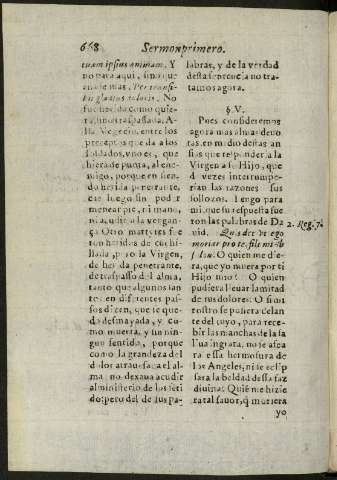 668 Sermon primero.
tuam ipsius animam. Y
no para aqui, sino que
anade mas, Pertransi-
bit gladius doloris. No
fue herida como quie-
ra, sino traspassada. A-
lla Vegecio, entre los
preceptos que da a los
soldados, vno es, que
hiera de punta, al ene-
migo, porque en sien-
do herida penetrante,
cae luego sin poder
menear pie, ni mano,
ni acudir a la vengan-
ça Otro martyres fue
ron heridos de cuchi-
llada, pero la Virgen,
de herida penetrante,
de traspasso del alma,
tanto que algunos san
tos en diferentes pas-
sos dizen, que se que-
do desmayada, y co-
mo muerta, y sin nin-
gun sentido, porque
como la grandeza del
dolor atrauessaua el al
ma, no dexaua acudir
al ministerio de los séti
dos: pero del de sus pa-
labras, y de la verdad
desta sentencia no tra-
tamos agora.
§. V.
Pues consideremos
agora mas almas deuo
tas, en medio destas an
sias que responder la
Virgen a su Hijo, que
d vezes interrumpe-
rian las razones sus
sollozos. Tengo para
mi, que su respuesta fue
ron las palabras de Da
uid. Quis det vt ego
moriar pro te, fili mi Ab
salon. O quien me die-
ra, que yo muera por ti
Hijo mio! O quien
pudiera lleuar la mitad
de tus dolores: O si mi
rostro se pusiera delan-
te del tuyo, para rece-
bir las manchas de la sa
liua ingrata, no se afea
ra essa hermosura de
los Angeles, ni se eclip
sara la beldad dessa faz
diuina: Quien me hizie
ra tal fauor, q̃ muriera
yo
2. Reg. 7.